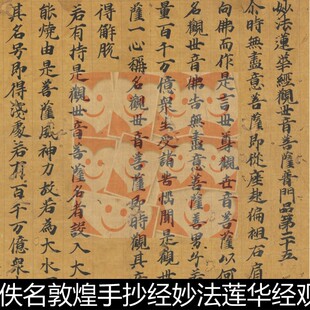 妙法蓮華經觀世音菩薩普門品第二十五
尒時無盡意菩薩即從座起偏袒右肩
向佛而作是言世尊觀世音菩薩以何
名觀世音佛告無盡意菩薩善男
量百千万億衆生受諸苦惱聞是觀世
薩一心稱名觀世音菩薩即時觀其
得解脫
若有持是觀世音菩薩名者設入大
能燒由是菩薩威神力故若為大水
其名号即得淺處若有百千万億衆
佚名敦煌手抄经妙法莲华经观